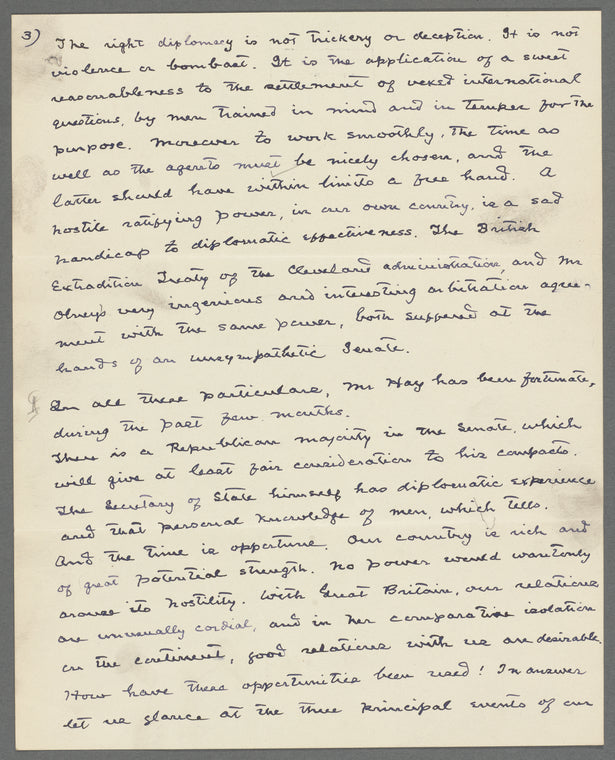 3)
The right diplomacy is not trickery or deception. It is not
violence or bombast. It is the application of a sweet
reasonableness to the settlement of vexed international
questions, by men trained in mind and in temper for the
purpose. Moreover to work smoothly, the time as
well as the agents must be nicely chosen, and the
latter should have within limits a free hand. A
hostile ratifying power, in our own country, is a sad
handicap to diplomatic effectiveness. The British
Extradition Treaty of the Cleveland administration, and Mr
Olney's very ingenious and interesting arbitration agree-
ment with the same power, both suffered at the
hands of an unsympathetic Senate.
In all these particulars, Mr Hay has been fortunate,
during the past few months.
There is a Republican majority in the Senate, which
will give at least fair consideration to his compacts.
The Secretary of State himself has diplomatic experience
and that personal knowledge of men, which tells.
And the time is opportune. Our country is rich and
of great potential strength. No power would wantonly
arouse its hostility. With Great Britain, our relations
are unusually cordial, and in her comparative isolation
on the continent, good relations with us are desirable.
How have these opportunities been used? In answer
let us glance at the three principal events of our